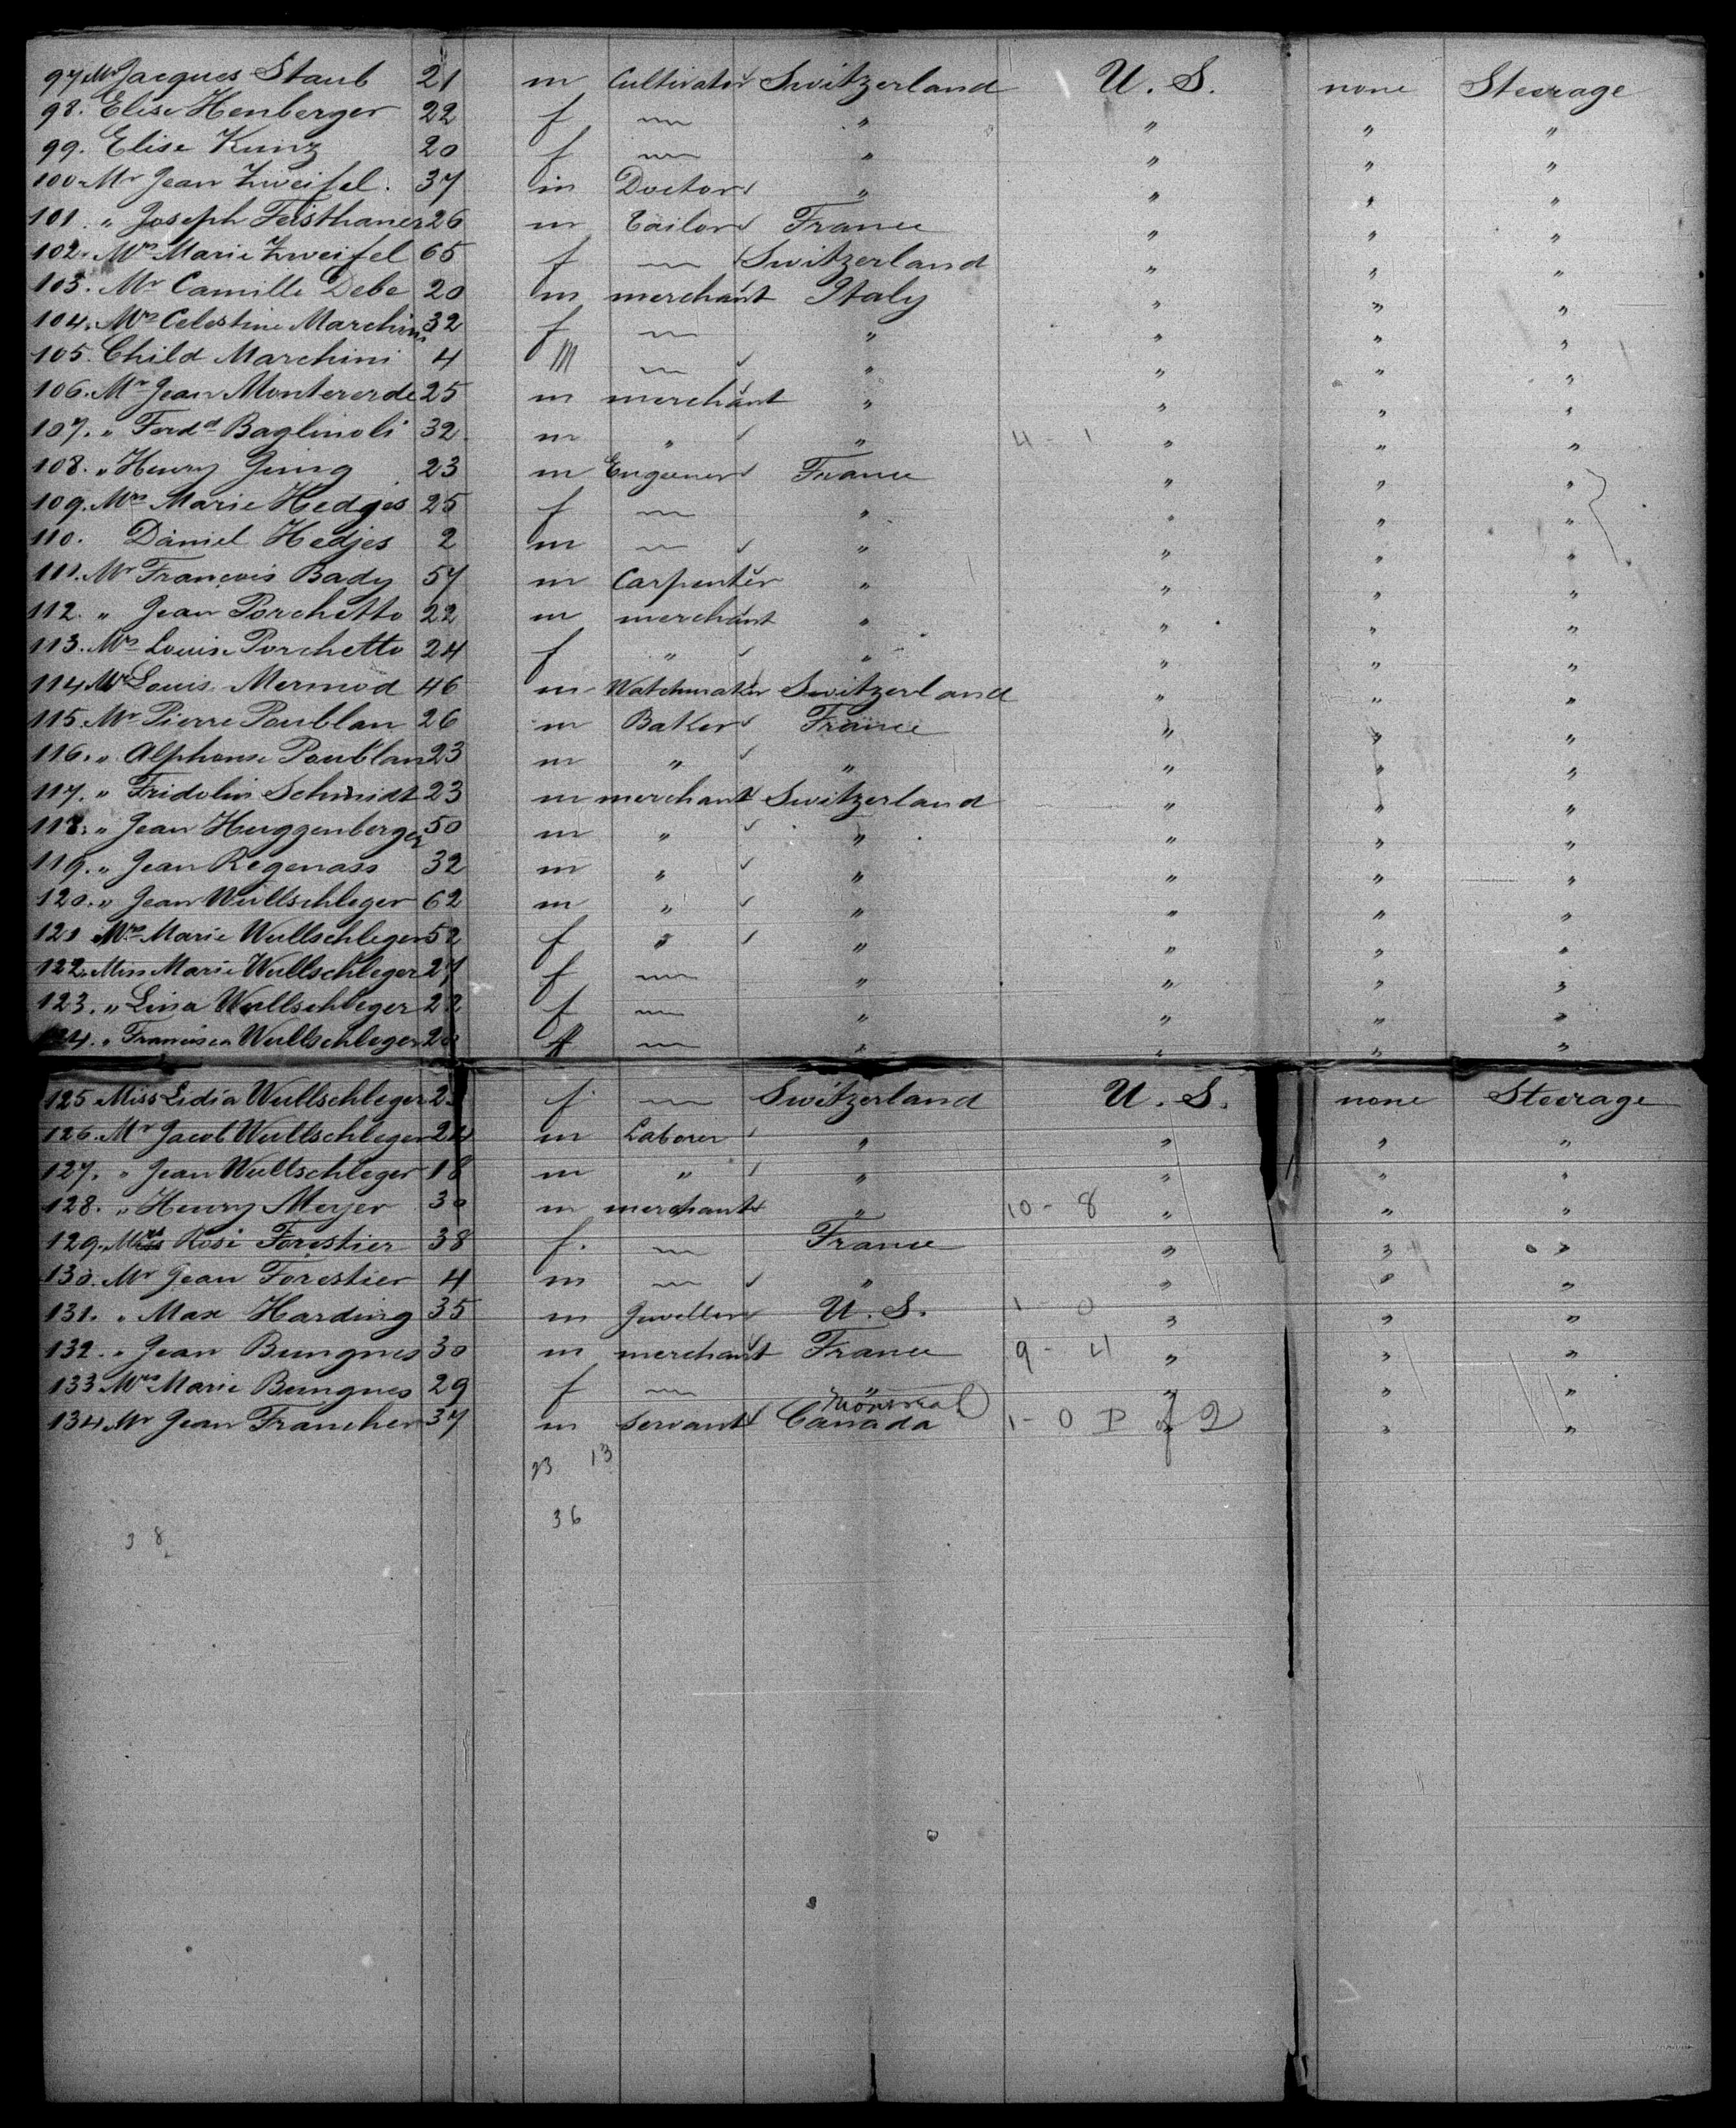 97 Mr Jacques Staub 21 m Cultivator Switzerland U. S. none Steerage
98. Elise Henberger 22 f — " " " "
99. Elise Kunz 20 f — " " " "
100 Mr Jean Zweifel. 37 m Doctor " " " "
101. " Joseph Feisthaner 26 m Tailor France " " "
102. Mrs Marie Zweifel 65 f — Switzerland " " "
103. Mr Camille Debe 20 m merchant Italy " " "
104. Mrs Celestine Marchini 32 f — " " " "
105. Child Marchini 4 m — " " " "
106. Mr Jean Monteverde 25 m merchant " " " "
107. " Ferdd 32 m " " 4 - 1 " " "
108. " Henry 23 m Engeener France " " "
109. Mrs Marie Hedges 25 f — " " " "
110. Daniel Hedjes 2 m — " " " "
111. Mr François Bady 57 m Carpenter " " " "
112. " Jean Porchetto 22 m merchant " " " "
113. Mrs Louise Porchetto 24 f " " " " "
114 Mr Louis Mermod 46 m Watchmaker Switzerland " " "
115. Mr Pierre Poublan 26 m Baker France " " "
116. " Alphonse Poublan 23 m " " " " "
117. " Fridolin Schmidt 23 m merchant Switzerland " " "
118. " Jean Huggenberger 50 m " " " " "
119. " Jean Regenass 32 m " " " " "
120. " Jean Wullschleger 62 m " " " " "
121 Mrs Marie Wullschleger 52 f " " " " "
122. Miss Marie Wullschleger 27 f — " " " "
123. " Lina Wullschleger 22 f — " " " "
124. " Francisca Wullschleger f — " " " "
125 Miss Lidia Wullschleger f — Switzerland U. S. none Steerage
126. Mr Jacob Wullschleger 24 m Laborer " " " "
127. " Jean Wullschleger 18 m " " " " "
128. " Henry Meyer 30 m merchant " 10 - 8 " " "
129. Mrs Rosi Forestier 38 f. — France " " "
130. Mr Jean Forestier 4 m — " " " "
131. " Max Harding 35 m Jweller U. S. 1 - 0 " " "
132. " Jean Bungnes 30 m merchant France 9 - 4 " " "
133 Mrs Marie Bungnes 29 f — " " " "
Montreal
134 Mr Jean Francher 37 m Servant Canada 1 - 0 P of 2 " " "
23 13
36
38